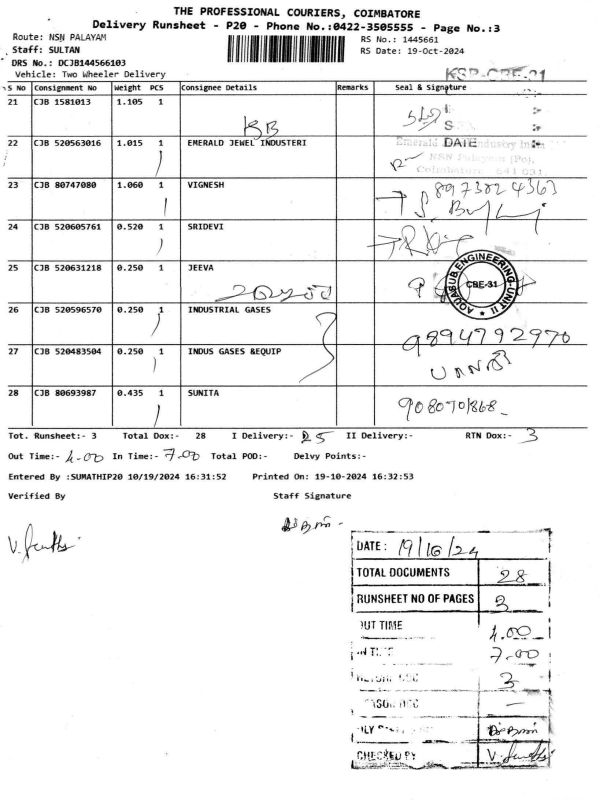 THE PROFESSIONAL COURIERS, COIMBATORE
Delivery Runsheet - P20 - Phone No.:0422-3505555 - Page No.:3
Route: NSN PALAYAM
RS No.: 1445661
Staff: SULTAN
RS Date: 19-Oct-2024
DRS No.: DCJB144566103
Vehicle: Two Wheeler Delivery
KSP-CBE-31
S No Consignment No Weight PCS Consignee Details Remarks Seal & Signature
21 CJB 1581013 1.105 1
22 CJB 520563016 1.015 1 EMERALD JEWEL INDUSTERI
DATE
Emerald Industry India
NSN Palayam (Po),
Coimbatore 641 031
23 CJB 80747080 1.060 1 VIGNESH
8973824363
24 CJB 520605761 0.520 1 SRIDEVI
25 CJB 520631218 0.250 1 JEEVA
AQUASUB ENGINEERING-UNIT II
CBE-31
26 CJB 520596570 0.250 1 INDUSTRIAL GASES
9894792970
27 CJB 520483504 0.250 1 INDUS GASES &EQUIP
28 CJB 80693987 0.435 1 SUNITA
9080701868
Tot. Runsheet:- 3 Total Dox:- 28 I Delivery:- 25 II Delivery:- RTN Dox:- 3
Out Time:- 4.00 In Time:- 7.00 Total POD:- Delvy Points:-
Entered By :SUMATHIP20 10/19/2024 16:31:52 Printed On: 19-10-2024 16:32:53
Verified By Staff Signature
DATE : 19/10/24
TOTAL DOCUMENTS 28
RUNSHEET NO OF PAGES 3
OUT TIME 4.00
IN TIME 7.00
RETURN DOC 3
CHECKED BY